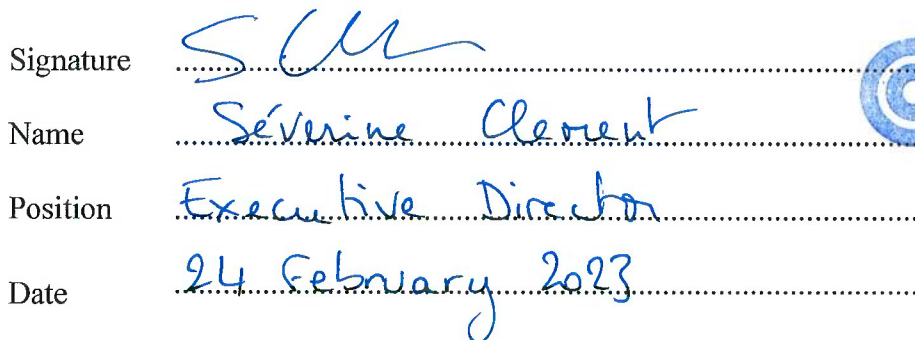 Signature
Name Séverine Clement
Position Executive Director
Date 24 February 2023